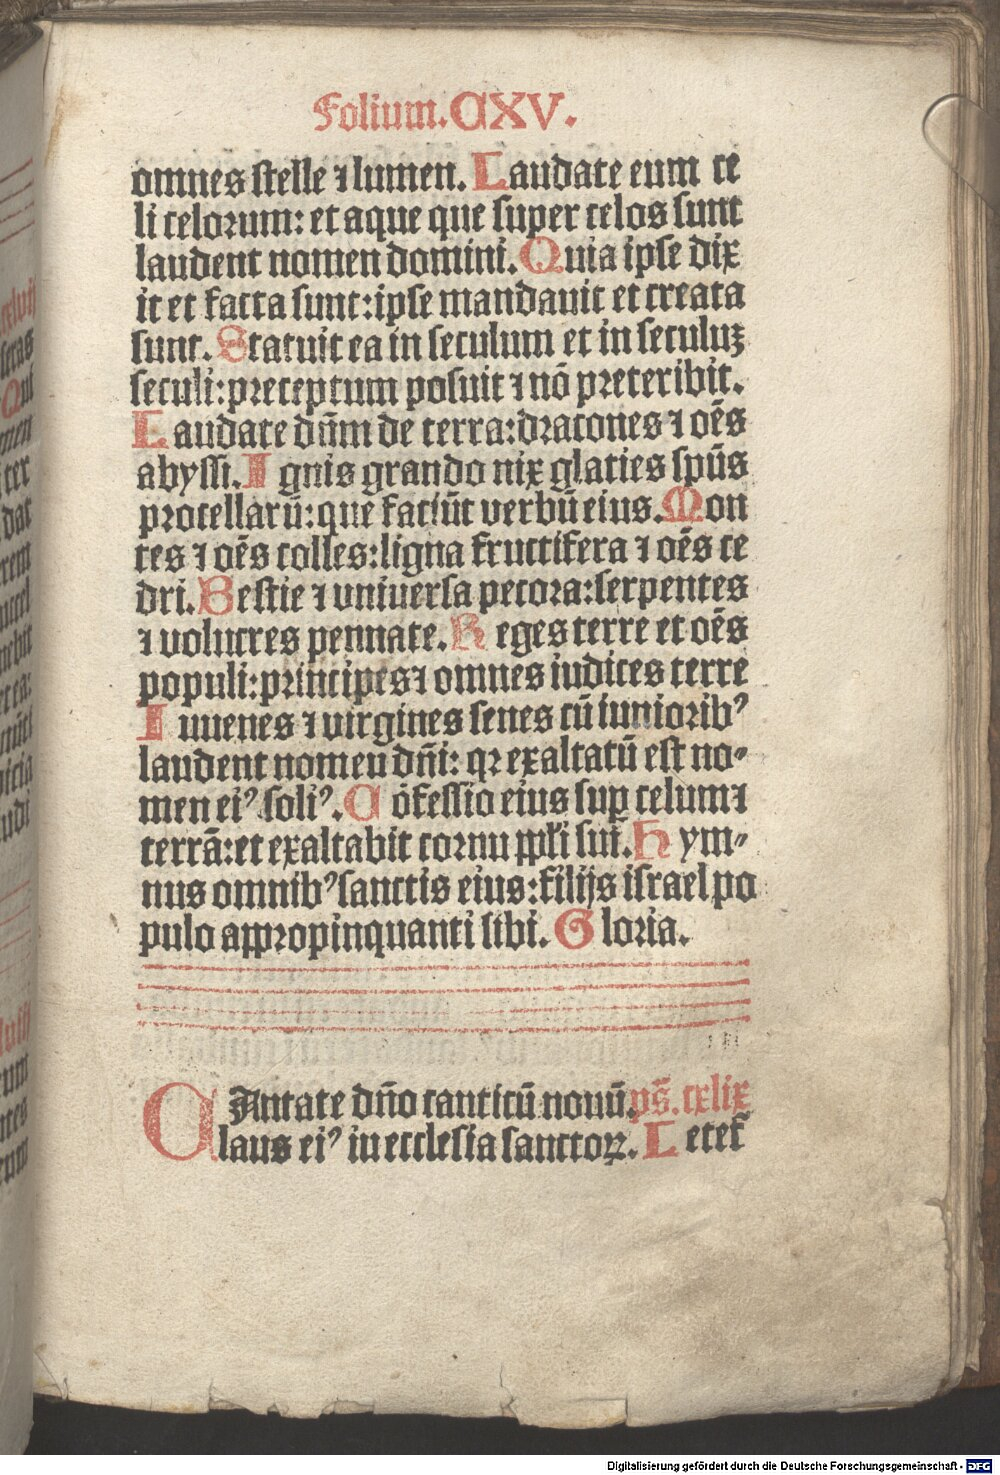 Folium. CXV.
omnes stelle ⁊ lumen. Laudate eum ce
li celorum: et aque que super celos sunt
laudent nomen domini. Quia ipse dix
it et facta sunt: ipse mandauit et creata
sunt. Statuit ea in seculum et in seculuꝫ
seculi: preceptum posuit ⁊ nō preteribit.
Laudate dn̄m de terra: dracones ⁊ oēs
abyssi. Ignis grando nix glacies spūs
procellarū: que faciūt verbū eius. Mon
tes ⁊ oēs colles: ligna fructifera ⁊ oēs ce
dri. Bestie ⁊ vniuersa pecora: serpentes
⁊ volucres pennate. Reges terre et oēs
populi: principes ⁊ omnes iudices terre
Iuuenes ⁊ virgines senes cū iuniorib⁹
laudent nomeu dn̄i: qꝛ exaltatū est no-
men ei⁹ soli⁹. Cōfessio eius suꝑ celum ⁊
terrā: et exaltabit cornu ppl̄i sui. Hym-
nus omnib⁹ sanctis eius: filijs israel po
pulo appropinquanti sibi. Gloria.
CAntate dn̄o canticū nouū. ps̄. cxlix
laus ei⁹ in ecclesia sanctoꝝ. Letet̄